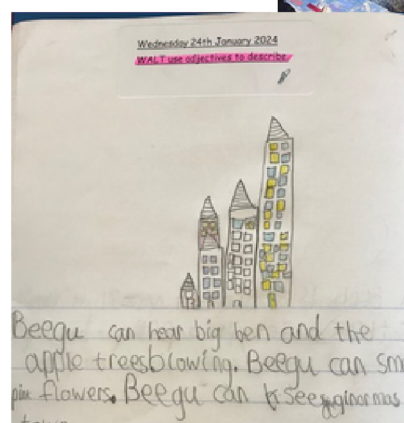 Wednesday 24th January 2024
WALT use adjectives to describe
Beegu can hear big ben and the
apple treesblowing. Beegu can sm
flowers. Beegu can see